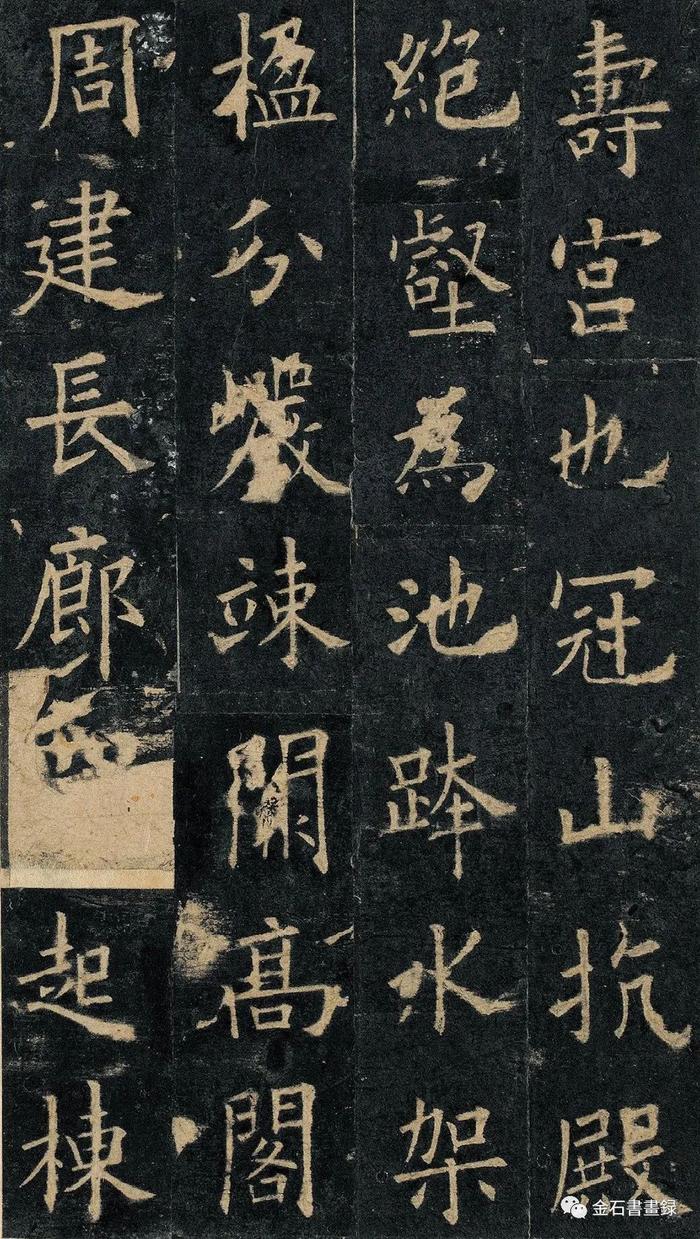 壽宮也冠山抗殿
絶壑為池跨水架
楹分巖竦闕高閣
周建長廊起棟
金石書畫録